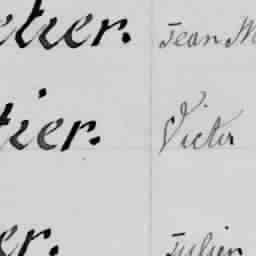 etier. Jean M
tier. Victor
er. Julien